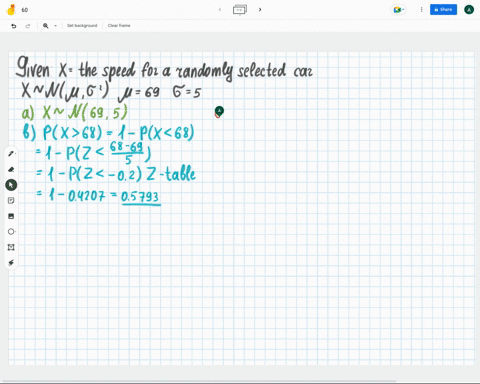 60
Share
A
Set background
Clear frame
Given X = the speed for a randomly selected car
X ~ N(μ, σ²) μ = 69 σ = 5
a) X ~ N(69, 5)
A
b) P(X > 68) = 1 - P(X < 68)
= 1 - P(Z < (68-69)/5)
= 1 - P(Z < -0.2) Z-table
= 1 - 0.4207 = 0.5793